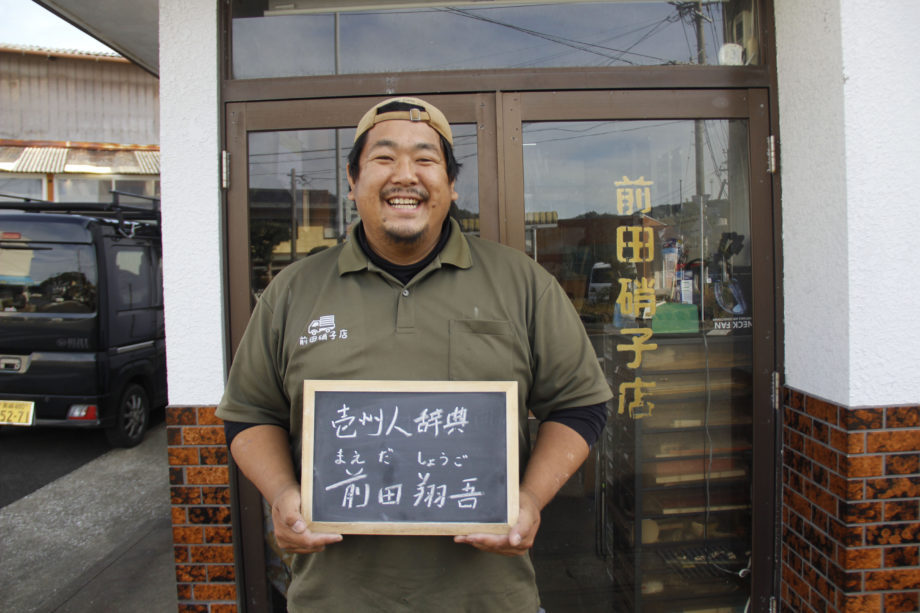 前田硝子店
前田硝子店
壱州人辞典
まえだ しょうご
前田 翔吾
NECK FAN
52-71